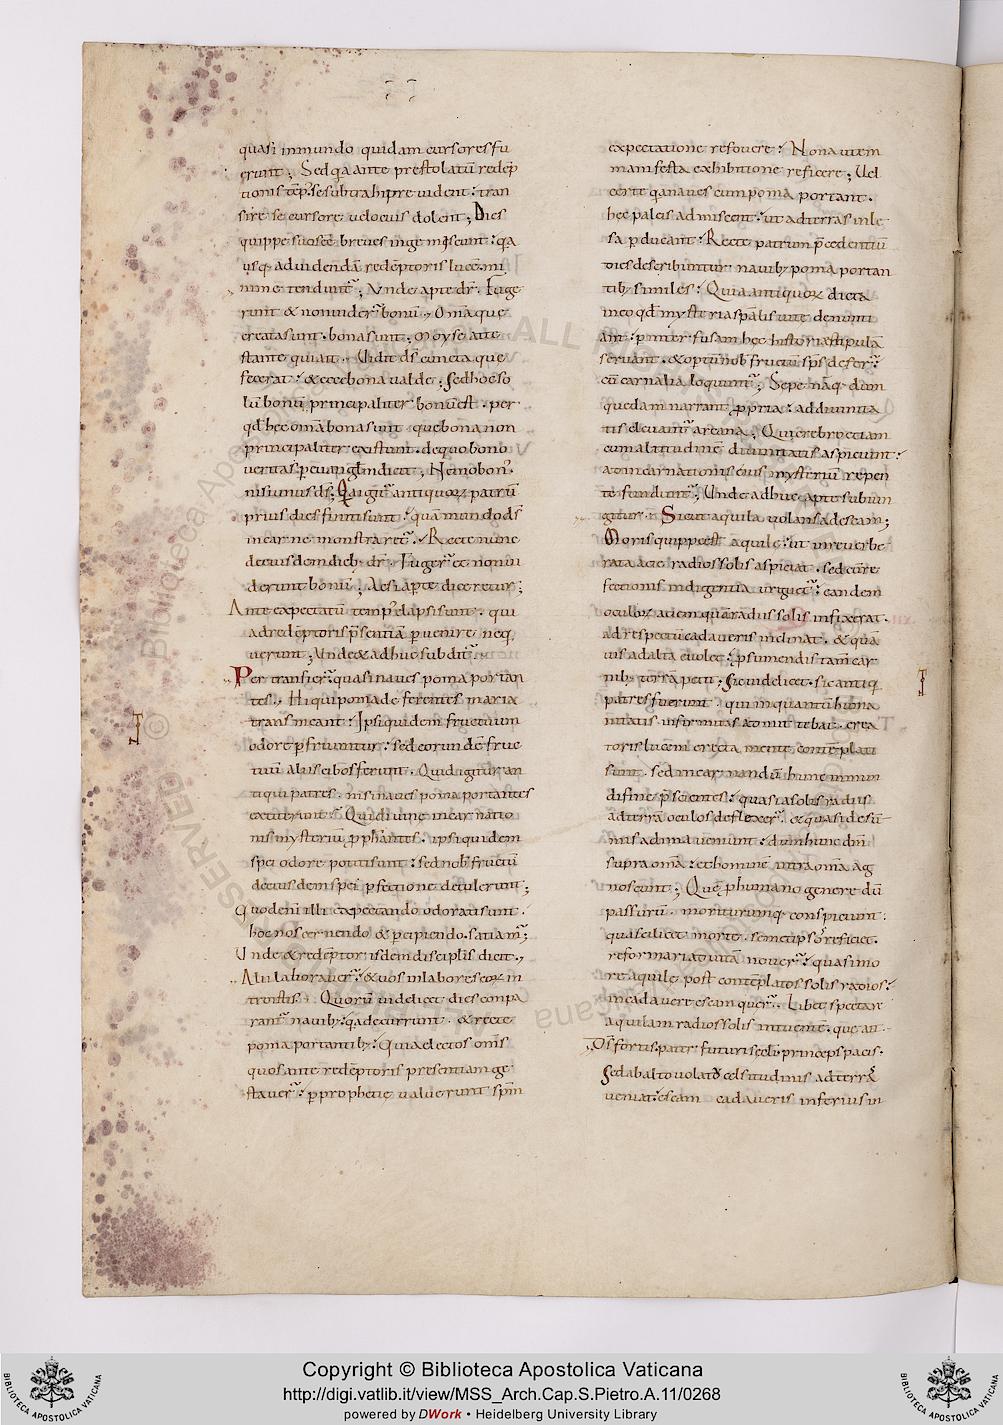 quasi in mundo quidam cursores fu
erunt; Sed q̄a ante prestolatū redēp
tionis tēp̄ se subtrahi p̄reuident: tran
sire se cursore uelocius dolent; Dies
quippe suos eē breues ingemiscunt: q̄a
usq; ad uidendā redēptoris lucē mi
nime tendunt᷑; Vnde apte dr̄. Fuge
runt & non uider̄ bonū. Omīa que
creata sunt. bona sunt. Moyse atte
stante qui ait. Vidit dſ cuncta que
fecerat: & ecce bona ualde; sed hoc so
lū bonū principaliter bonū est. per
qd̄ hec om̄a bona sunt. que bona non
principaliter existunt. de quo bono
ueritas p̄ euaugl̄m dicit; Nemo bon᷒.
nisi unus dſ; Q̄a igit᷑ antiquoꝝ patrū
prius dies finiti sunt: quā mundo dſ
in carne monstraret᷑. Recte nunc
de eiusdem dieb; dr̄. Fuger̄ & non ui
derunt bonū; Ac si ap̄te diceretur;
Ante expectatū temp᷒ elapsi sunt. qui
ad redēptoris p̄sentiā p̄uenire neq
uerunt; Vnde & adhuc subdit᷑.
Per transier̄ quasi naues poma portan
tes. Hi qui poma deferentes maria
transmeant: Ipsi quidem fructuum
odore p̄fruuntur: sed eorundē fruc
tuū aliis cibos ferunt. Quid igitur an
tiqui patres. nisi naues poma portantes
extiterunt: Qui diuine incarnatio
nis mysteriū p̄phantes. ipsi quidem
spei odore potiti sunt: sed nob̄ fructū
de eiusdem spei p̄fectione detulerunt;
Quod enī illi expectando odorati sunt.
hoc nos cernendo & p̄cipiendo satiam᷑;
Vnde & redēptor isdem disciplis dicit.
Alii laborauer̄: & uos in labores eoꝝ in
troistis. Quorū uidelicet dies conpa
rant᷑ nauib; q̄a decurrunt. & recte
poma portantib; Quia electos om̄s
quos ante redēptoris presentiam ge
stauer̄: p̄ prophetie ualuerunt sp̄m
expectatione refouere: Non autem
manifesta exhibitione reficere; Vel
certe q̄a naues cum poma portant.
hec paleis admiscent: ut ad terras inle
sa p̄ducant: Recte patrum p̄cedentiū
dies describuntur nauib; poma portan
tib; similes: Quia antiquoꝝ dicta
in eo qd̄ mysteria sp̄alis uite denunti
ant: p̄mixter fusam hec historia stipulā
seruant. & optū nob̄ fructū sp̄s deferr̄:
cū carnalia loquunt᷑; Sepe nāq; dum
quedam narrant p̄pria: ad diuinita
tis eleuant᷑ arcana; Qui crebro etiam
cum altitudinē diuinitatis aspiciunt:
ad incarnationis eius mysteriū repen
te fundunt᷑; Vnde adhuc apte subiun
gitur. Sicut aquila uolans ad escam;
Moris quippe est aquile: ut inreuerbe
rata acie radios solis aspiciat. sed cū re
fectionis indigentia urguet᷑: eandem
oculoꝝ aciem quā radiis solis infixerat.
ad respectū cadaueris inclinat. & quā
uis ad alta euolet: p̄ sumendis tam car
nib; terrā petit; Sic uidelicet. sic antiq
patres fuerunt. qui in quantū huma
nitatis infirmitas admittebat. crea
toris lucem erecta mente contēplati
sunt. sed incarnandū hunc in mun
di fine p̄scientes: quasi a solis radiis
ad terrā oculos deflexer̄. & quasi de sū
mis ad ima ueniunt: dum hunc dm̄
supra om̄a: et hominē intra om̄a ag
noscunt; Quē p̄ humano genere dū
passurū. moriturumq; conspiciunt:
qua scilicet morte. semetip̄sos refici &.
reformari ad uitā nouer̄: quasi mo
re aquile post contēplatos solis radios:
in cadauere escam quer̄. Libet spectare
aquilam radios solis intuentē. que ait.
Ds fortis. pater futuri scl̄i. princeps pacis.
Sed ab alto uolato celsitudinis ad terrā
ueniat: escam cadaueris inferius in
Copyright © Biblioteca Apostolica Vaticana
http://digi.vatlib.it/view/MSS_Arch.Cap.S.Pietro.A.11/0268
powered by DWork • Heidelberg University Library
BIBLIOTECA APOSTOLICA VATICANA
BIBLIOTECA APOSTOLICA VATICANA